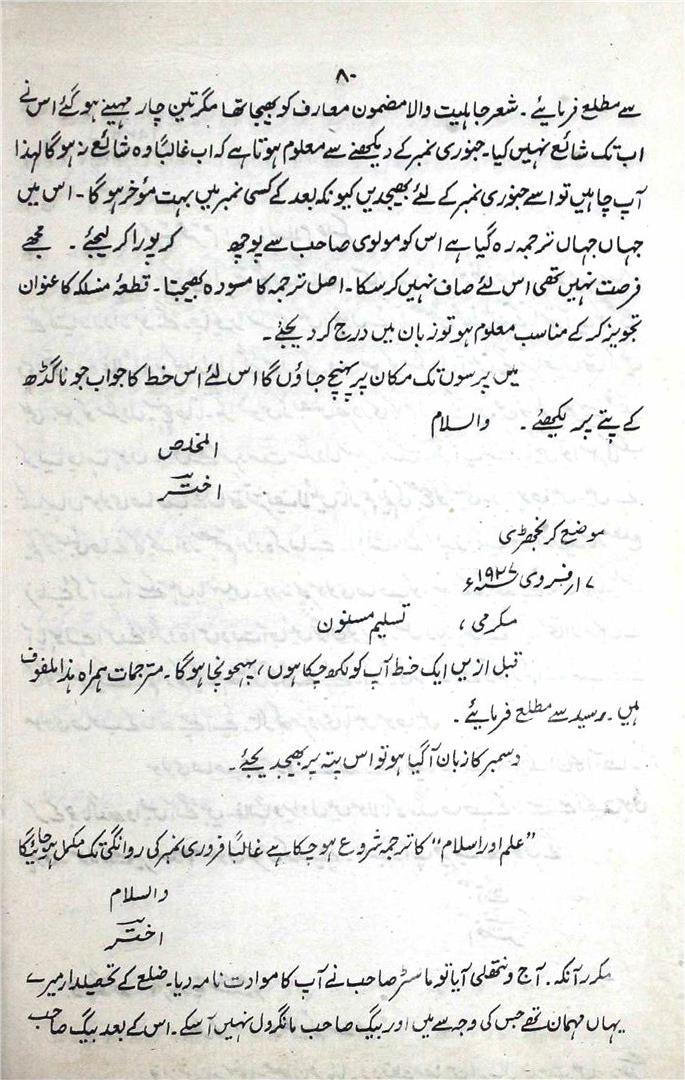 ۸۰
سے مطلع فرمایئے ۔ شعر جاہلیت والا مضمون معارف کو بھیجا تھا مگر تین چار مہینے ہو گئے اس نے
اب تک شائع نہیں کیا۔ جنوری نمبر کے دیکھنے سے معلوم ہوتا ہے کہ اب غالباً وہ شائع نہ ہوگا لہذا
آپ چاہیں تو اسے جنوری نمبر کے لئے بھیجدیں کیونکہ بعد کے کسی نمبر میں بہت مؤخر ہوگا ۔ اس میں
جہاں جہاں ترجمہ رہ گیا ہے اس کو مولوی صاحب سے پوچھ کر پورا کر لیجئے ۔ مجھے
فرصت نہیں تھی اس لئے صاف نہیں کر سکا۔ اصل ترجمہ کا مسودہ بھیجتا۔ قطعۂ منسلکہ کا عنوان
تجویز کر کے مناسب معلوم ہو تو زبان میں درج کر دیجئے ۔
میں پرسوں تک مکان پر پہنچ جاؤں گا اس لئے اس خط کا جواب جوناگڈھ
کے پتے پر لکھئے ۔ والسلام
المخلص
اختر
موضع کر
۱۷ ار فروی ۱۹۲۷ء
مکرمی ، تسلیم مسنون
قبل ازیں ایک خط آپ کو لکھ چکا ہوں ، پہونچا ہوگا ۔ مترجمات ہمراہ ہذا ملفوف
ہیں ۔ رسید سے مطلع فرمایئے ۔
دسمبر کا زبان آ گیا ہو تو اس پتہ پر بھیجدیجئے ۔
"علم اور اسلام" کا ترجمہ شروع ہو چکا ہے غالباً فروری نمبر کی روانگی تک مکمل ہو جائیگا
والسلام
اختر
مکرر آنکہ ۔ آج ونتھلی آیا تو ماسٹر صاحب نے آپ کا موادت نامہ دیا۔ ضلع کے تحصیلدار میرے
یہاں مہمان تھے جس کی وجہ سے میں اور بیگ صاحب مانگرول نہیں آ سکے ۔ اس کے بعد بیگ صاحب